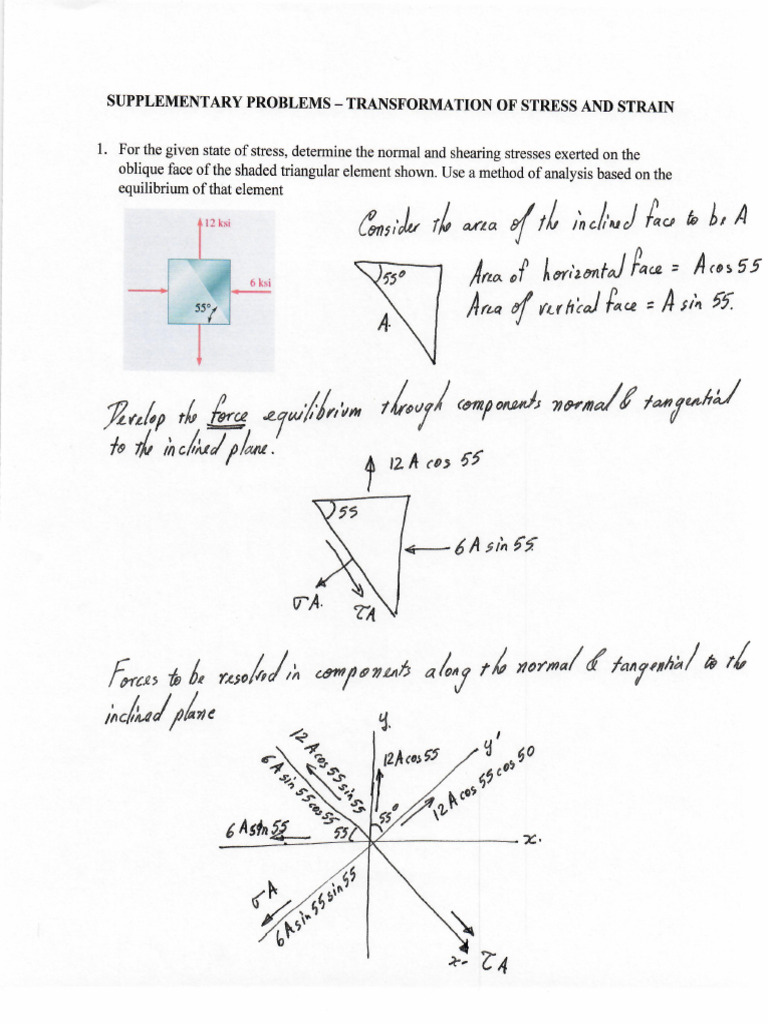 SUPPLEMENTARY PROBLEMS – TRANSFORMATION OF STRESS AND STRAIN
1. For the given state of stress, determine the normal and shearing stresses exerted on the
oblique face of the shaded triangular element shown. Use a method of analysis based on the
equilibrium of that element
12 ksi
6 ksi
55°
Consider the area of the inclined face to be A
55°
A.
Area of horizontal face = A cos 55
Area of vertical face = A sin 55.
Develop the force equilibrium through components normal & tangential
to the inclined plane.
12 A cos 55
55
6 A sin 55.
σ A.
τA
Forces to be resolved in components along the normal & tangential to the
inclined plane
y.
y'
12 A cos 55 sin 55
6 A sin 55 cos 55
12 A cos 55
12 A cos 55 cos 50
6 A sin 55
55
55°
x.
σ A
6 A sin 55 sin 55
x.
τ A